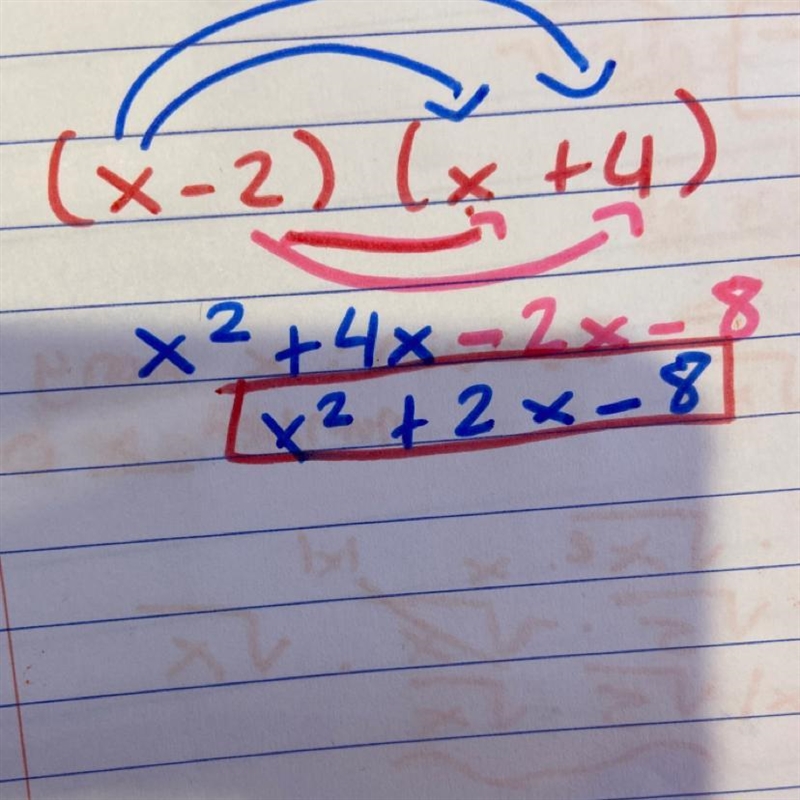 (x-2) (x+4)
x² +4x-2x-8
x²+2x-8